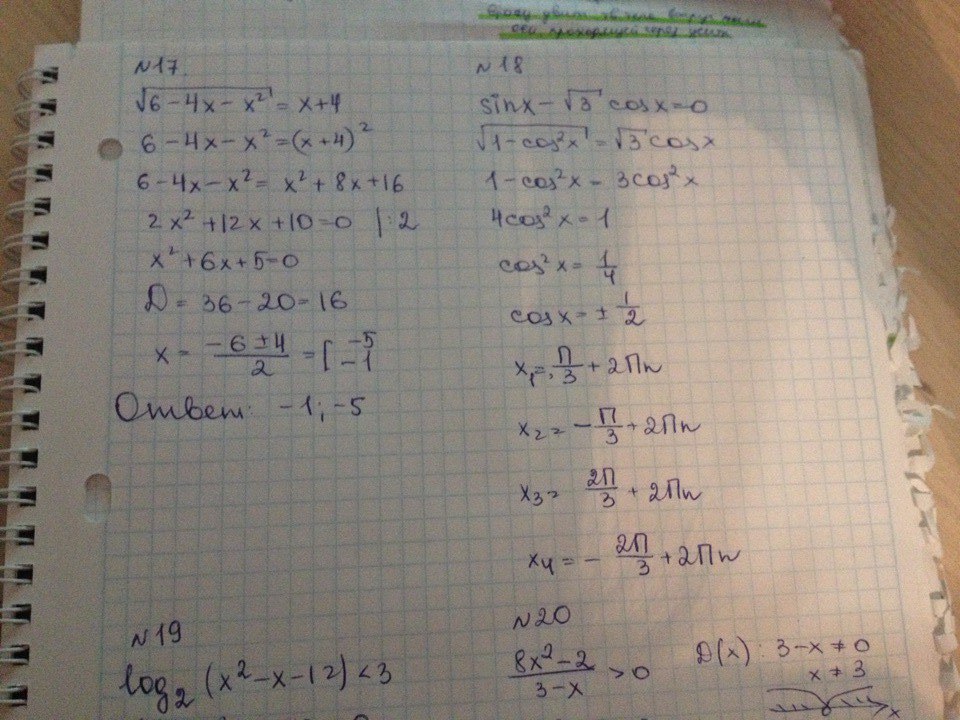 №17
√(6-4x-x²) = x+4
6-4x-x² = (x+4)²
6-4x-x² = x²+8x+16
2x²+12x+10=0 |:2
x²+6x+5=0
D = 36-20=16
x = (-6±4)/2 = [ -5 -1
Ответ: -1; -5
№18
sinx - √3 cosx=0
√(1-cos²x) = √3 cosx
1-cos²x = 3cos²x
4cos²x = 1
cos²x = 1/4
cosx = ± 1/2
x₁ = π/3 + 2πn
x₂ = -π/3 + 2πn
x₃ = 2π/3 + 2πn
x₄ = - 2π/3 + 2πn
№19
log₂ (x²-x-12) < 3
№20
(8x²-2)/(3-x) > 0
D(x): 3-x ≠ 0
x ≠ 3
x